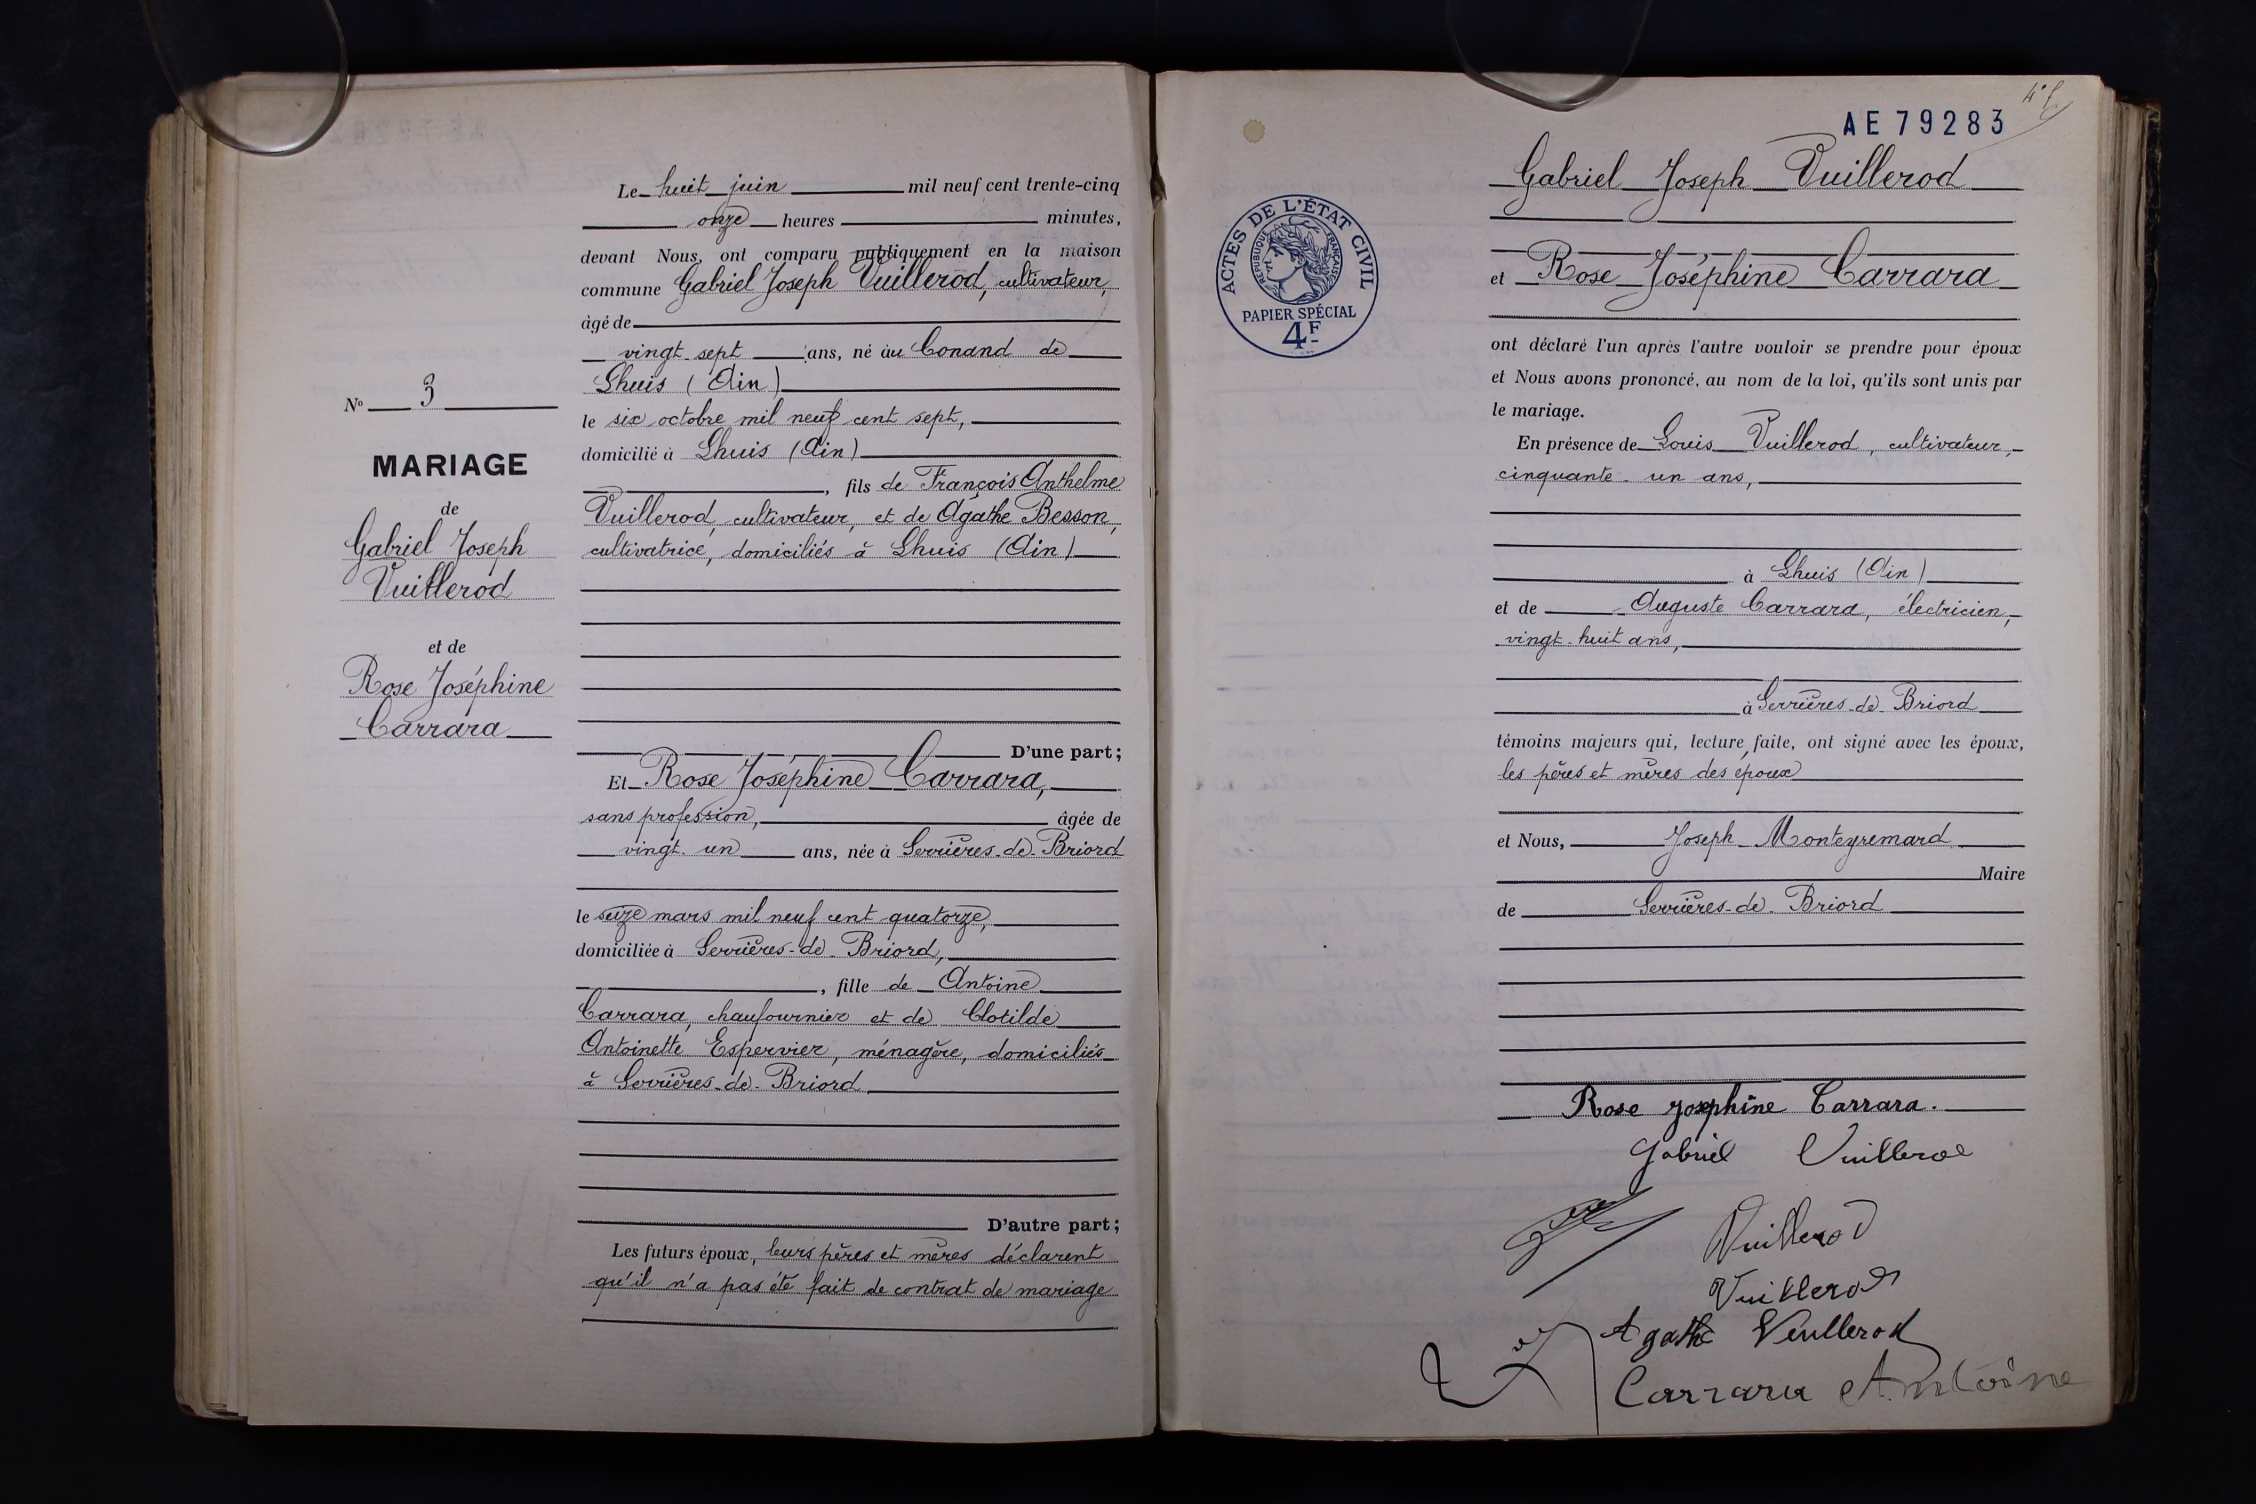 Le huit juin mil neuf cent trente-cinq
onze heures minutes,
devant Nous, ont comparu publiquement en la maison
commune Gabriel Joseph Vuillerod, cultivateur,
âgé de
vingt-sept ans, né au Conand de
Lhuis (Ain)
le six octobre mil neuf cent sept,
domicilié à Lhuis (Ain)
, fils de François Anthelme
Vuillerod, cultivateur, et de Agathe Besson,
cultivatrice, domiciliés à Lhuis (Ain)
D'une part;
Et Rose Joséphine Carrara,
sans profession, âgée de
vingt-un ans, née à Serrières-de-Briord
le seize mars mil neuf cent quatorze,
domiciliée à Serrières-de-Briord,
, fille de Antoine
Carrara, chaufournier et de Clotilde
Antoinette Espervier, ménagère, domiciliés
à Serrières-de-Briord
D'autre part;
Les futurs époux, leurs pères et mères déclarent
qu'il n'a pas été fait de contrat de mariage
N° 3
MARIAGE
de
Gabriel Joseph
Vuillerod
et de
Rose Joséphine
Carrara
AE 79283
ACTES DE L'ÉTAT CIVIL
RÉPUBLIQUE FRANÇAISE
PAPIER SPÉCIAL
4F
Gabriel Joseph Vuillerod
et Rose Joséphine Carrara
ont déclaré l'un après l'autre vouloir se prendre pour époux
et Nous avons prononcé, au nom de la loi, qu'ils sont unis par
le mariage.
En présence de Louis Vuillerod, cultivateur,
cinquante-un ans,
à Lhuis (Ain)
et de Auguste Carrara, électricien,
vingt-huit ans,
à Serrières-de-Briord
témoins majeurs qui, lecture faite, ont signé avec les époux,
les pères et mères des époux
et Nous, Joseph Monteyremard
Maire
de Serrières-de-Briord
Rose Josephine Carrara.
Gabriel Vuillerod
Vuillerod
Vuillerod
Agathe Vuillerod
Carrara Antoine